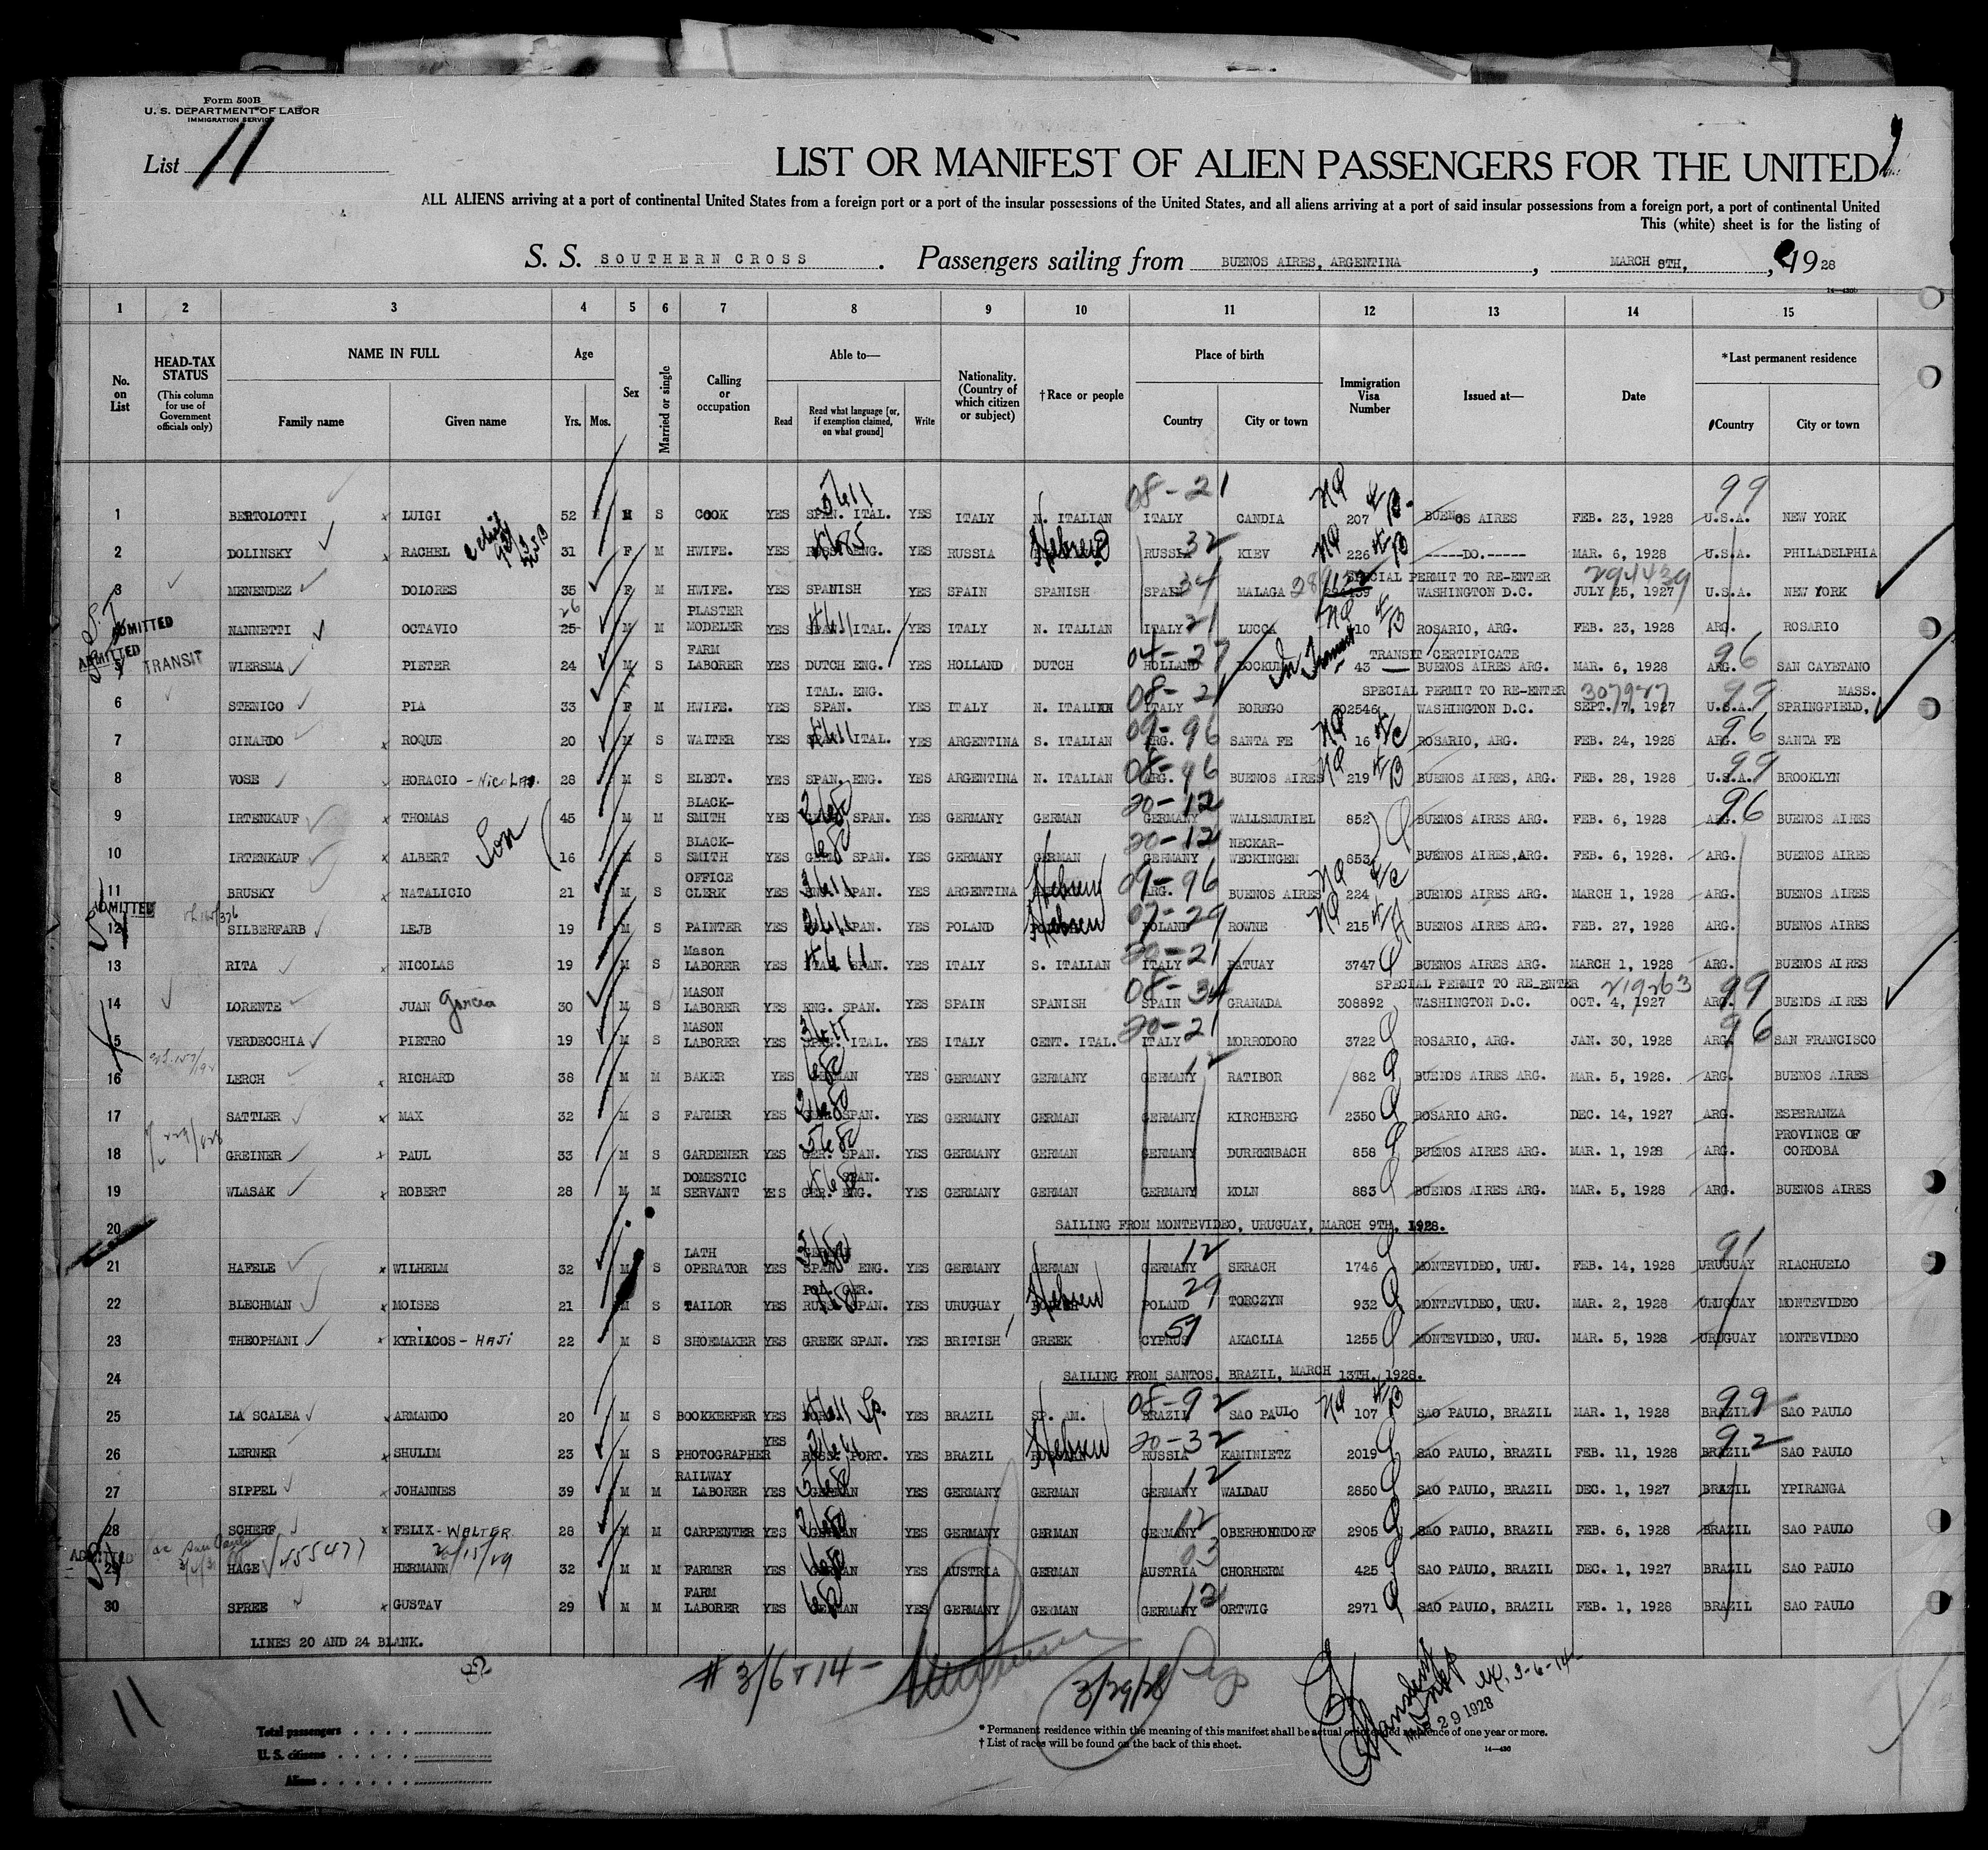 Form 500B
U. S. DEPARTMENT OF LABOR
IMMIGRATION SERVICE
List 11
LIST OR MANIFEST OF ALIEN PASSENGERS FOR THE UNITED
ALL ALIENS arriving at a port of continental United States from a foreign port or a port of the insular possessions of the United States, and all aliens arriving at a port of said insular possessions from a foreign port, a port of continental United
This (white) sheet is for the listing of
S. S. SOUTHERN CROSS. Passengers sailing from BUENOS AIRES, ARGENTINA, MARCH 8TH, , 1928
1 2 3 4 5 6 7 8 9 10 11 12 13 14 15
No. on List
HEAD-TAX STATUS (This column for use of Government officials only)
NAME IN FULL
Family name Given name
Age Yrs. Mos.
Sex
Married or single
Calling or occupation
Able to—
Read Read what language [or, if exemption claimed, on what ground] Write
Nationality. (Country of which citizen or subject)
†Race or people
Place of birth
Country City or town
Immigration Visa Number
Issued at—
Date
*Last permanent residence
Country City or town
1 BERTOLOTTI LUIGI 52 M S COOK YES SPAN. ITAL. YES ITALY N. ITALIAN 08-21 ITALY CANDIA NQ 207 BUENOS AIRES FEB. 23, 1928 99 U.S.A. NEW YORK
2 DOLINSKY RACHEL 31 F M HWIFE. YES ENG. YES RUSSIA Hebrew RUSSIA 32 KIEV NQ 226 -----DO.----- MAR. 6, 1928 U.S.A. PHILADELPHIA
3 MENENDEZ DOLORES 35 F M HWIFE. YES SPANISH YES SPAIN SPANISH SPAIN 34 MALAGA SPECIAL PERMIT TO RE-ENTER WASHINGTON D.C. 294439 JULY 25, 1927 U.S.A. NEW YORK
ADMITTED NANNETTI OCTAVIO 26 25 M M PLASTER MODELER YES SPAN. ITAL. YES ITALY N. ITALIAN ITALY 21 LUCCA NQ 10 ROSARIO, ARG. FEB. 23, 1928 ARG. ROSARIO
ADMITTED 5 TRANSIT WIERSMA PIETER 24 M S FARM LABORER YES DUTCH ENG. YES HOLLAND DUTCH 04-27 HOLLAND BOCKUM In Transit 43 TRANSIT CERTIFICATE BUENOS AIRES ARG. MAR. 6, 1928 96 ARG. SAN CAYETANO
6 STENICO PIA 33 F M HWIFE. YES ITAL. ENG. SPAN. YES ITALY N. ITALIAN 08-21 ITALY BOREGO 302546 SPECIAL PERMIT TO RE-ENTER WASHINGTON D.C. 307977 SEPT. 7, 1927 99 U.S.A. MASS. SPRINGFIELD,
7 CINARDO ROQUE 20 M S WAITER YES ITAL. YES ARGENTINA S. ITALIAN 09-96 ARG. SANTA FE NQ 16 ROSARIO, ARG. FEB. 24, 1928 96 ARG. SANTA FE
8 VOSE HORACIO - NICOLAS. 28 M S ELECT. YES SPAN. ENG. YES ARGENTINA N. ITALIAN 08-96 ARG. BUENOS AIRES NQ 219 BUENOS AIRES, ARG. FEB. 28, 1928 99 U.S.A. BROOKLYN
9 IRTENKAUF THOMAS 45 M M BLACK-SMITH YES SPAN. YES GERMANY GERMAN 20-12 GERMANY WALLSMURIEL 852 Q BUENOS AIRES ARG. FEB. 6, 1928 96 ARG. BUENOS AIRES
10 IRTENKAUF ALBERT Son 16 M S BLACK-SMITH YES GER. SPAN. YES GERMANY GERMAN 20-12 GERMANY NECKAR-WECKINGEN 853 BUENOS AIRES, ARG. FEB. 6, 1928. ARG. BUENOS AIRES
11 BRUSKY NATALICIO 21 M S OFFICE CLERK YES SPAN. YES ARGENTINA Hebrew 09-96 ARG. BUENOS AIRES NQ 224 BUENOS AIRES ARG. MARCH 1, 1928 ARG. BUENOS AIRES
ADMITTED 12 SILBERFARB LEJB 19 M S PAINTER YES SPAN. YES POLAND Hebrew 07-29 POLAND ROWNE NQ 215 BUENOS AIRES ARG. FEB. 27, 1928 ARG. BUENOS AIRES
13 RITA NICOLAS 19 M S Mason LABORER YES ITAL. SPAN. YES ITALY S. ITALIAN 20-21 ITALY PATUAY 3747 Q BUENOS AIRES ARG. MARCH 1, 1928 ARG. BUENOS AIRES
14 LORENTE JUAN Garcia 30 M S MASON LABORER YES ENG. SPAN. YES SPAIN SPANISH 08-34 SPAIN GRANADA 308892 SPECIAL PERMIT TO RE-ENTER WASHINGTON D.C. 219263 OCT. 4, 1927 99 ARG. BUENOS AIRES
15 VERDECCHIA PIETRO 19 M S MASON LABORER YES SPAN. ITAL. YES ITALY CENT. ITAL. 20-21 ITALY MORRODORO 3722 Q ROSARIO, ARG. JAN. 30, 1928 96 ARG. SAN FRANCISCO
16 LERCH RICHARD 38 M M BAKER YES GERMAN YES GERMANY GERMANY 12 GERMANY RATIBOR 882 Q BUENOS AIRES ARG. MAR. 5, 1928. ARG. BUENOS AIRES
17 SATTLER MAX 32 M S FARMER YES SPAN. YES GERMANY GERMAN GERMANY KIRCHBERG 2350 Q ROSARIO ARG. DEC. 14, 1927 ARG. ESPERANZA
18 GREINER PAUL 33 M S GARDENER YES GER. SPAN. YES GERMANY GERMAN GERMANY DURRENBACH 858 Q BUENOS AIRES ARG. MAR. 1, 1928 ARG. PROVINCE OF CORDOBA
19 WLASAK ROBERT 28 M M DOMESTIC SERVANT YES SPAN. GER. ENG. YES GERMANY GERMAN GERMANY KOLN 883 Q BUENOS AIRES ARG. MAR. 5, 1928 ARG. BUENOS AIRES
20 SAILING FROM MONTEVIDEO, URUGUAY, MARCH 9TH, 1928.
21 HAFELE WILHELM 32 M S LATH OPERATOR YES GERMAN SPAN. ENG. YES GERMANY GERMAN 12 GERMANY SERACH 1746 Q MONTEVIDEO, URU. FEB. 14, 1928 91 URUGUAY RIACHUELO
22 BLECHMAN MOISES 21 M S TAILOR YES POL. GER. RUSS. SPAN. YES URUGUAY Hebrew 29 POLAND TORCZYN 932 Q MONTEVIDEO, URU. MAR. 2, 1928 URUGUAY MONTEVIDEO
23 THEOPHANI KYRIACOS - HAJI 22 M S SHOEMAKER YES GREEK SPAN. YES BRITISH GREEK 59 CYPRUS AKACLIA 1255 Q MONTEVIDEO, URU. MAR. 5, 1928 URUGUAY MONTEVIDEO
24 SAILING FROM SANTOS, BRAZIL, MARCH 13TH, 1928.
25 LA SCALEA ARMANDO 20 M S BOOKKEEPER YES Sp. YES BRAZIL SP. AM. 08-92 BRAZIL SAO PAULO NQ 107 SAO PAULO, BRAZIL MAR. 1, 1928 99 BRAZIL SAO PAULO
26 LERNER SHULIM 23 M S PHOTOGRAPHER YES RUSS. PORT. YES BRAZIL Hebrew 20-32 RUSSIA KAMINIETZ 2019 Q SAO PAULO, BRAZIL FEB. 11, 1928 92 BRAZIL SAO PAULO
27 SIPPEL JOHANNES 39 M M RAILWAY LABORER YES GERMAN YES GERMANY GERMAN 12 GERMANY WALDAU 2850 Q SAO PAULO, BRAZIL DEC. 1, 1927 BRAZIL YPIRANGA
28 SCHERF FELIX - WALTER 28 M M CARPENTER YES GERMAN YES GERMANY GERMAN 12 GERMANY OBERHOHNDORF 2905 Q SAO PAULO, BRAZIL FEB. 6, 1928 BRAZIL SAO PAULO
ADMITTED 29 HAGE HERMANN 32 M M FARMER YES GERMAN YES AUSTRIA GERMAN 03 AUSTRIA CHORHERM 425 Q SAO PAULO, BRAZIL DEC. 1, 1927 BRAZIL SAO PAULO
30 SPREE GUSTAV 29 M M FARM LABORER YES GERMAN YES GERMANY GERMAN 12 GERMANY ORTWIG 2971 Q SAO PAULO, BRAZIL FEB. 1, 1928 BRAZIL SAO PAULO
LINES 20 AND 24 BLANK.
# 3/6 + 14 -
3/29/28
11
MAR 29 1928
Total passengers
U. S. citizens
Aliens
* Permanent residence within the meaning of this manifest shall be actual or intended residence of one year or more.
† List of races will be found on the back of this sheet.
14—430